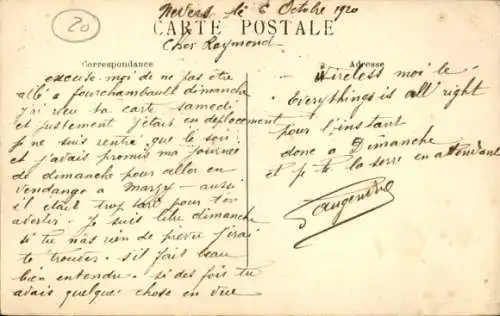 20
Nevers le 6 Octobre 1920
CARTE POSTALE
Cher Raymond
Correspondance
Adresse
excuse-moi de ne pas être
allé a fourchambault dimanche
j'ai reçu ta carte samedi
et justement j'étais en déplacement
je ne suis rentré que le soir
et j'avais promis ma journée
de dimanche pour aller en
vendange a Marzy - aussi
il était trop tard pour t'en
avertir. je suis libre dimanche
si tu n'as rien de prevu j'irai
te trouver. s'il fait beau
bien entendu. si des fois tu
avais quelque chose en vue
Wireless moi le
Everythings is all right
pour l'instant
donc a Dimanche
et je te la serre en attendant